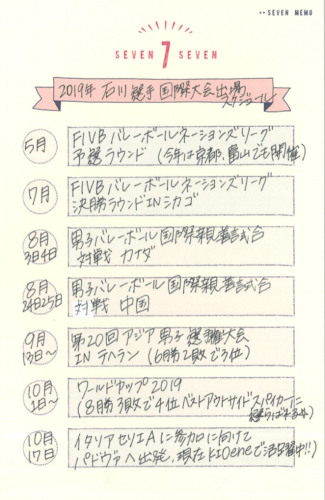 SEVEN MEMO
SEVEN 7 SEVEN
2019年 石川選手 国際大会出場
スケジュール
5月
FIVBバレーボールネーションズリーグ
予選ラウンド (今年は京都、富山でも開催)
7月
FIVBバレーボールネーションズリーグ
決勝ラウンドINシカゴ
8月
3日4日
男子バレーボール国際親善試合
対戦 カナダ
8月
24日25日
男子バレーボール国際親善試合
対戦 中国
9月
13日〜
第20回アジア男子選手権大会
INテヘラン (6勝2敗で3位)
10月
1日〜
ワールドカップ2019
(8勝3敗で4位 ベストアウトサイドスパイカーに
選らばれる)
10月
17日
イタリアセリエAに参加に向けて
パドヴァへ出発。現在Kioeneで活躍中!!)